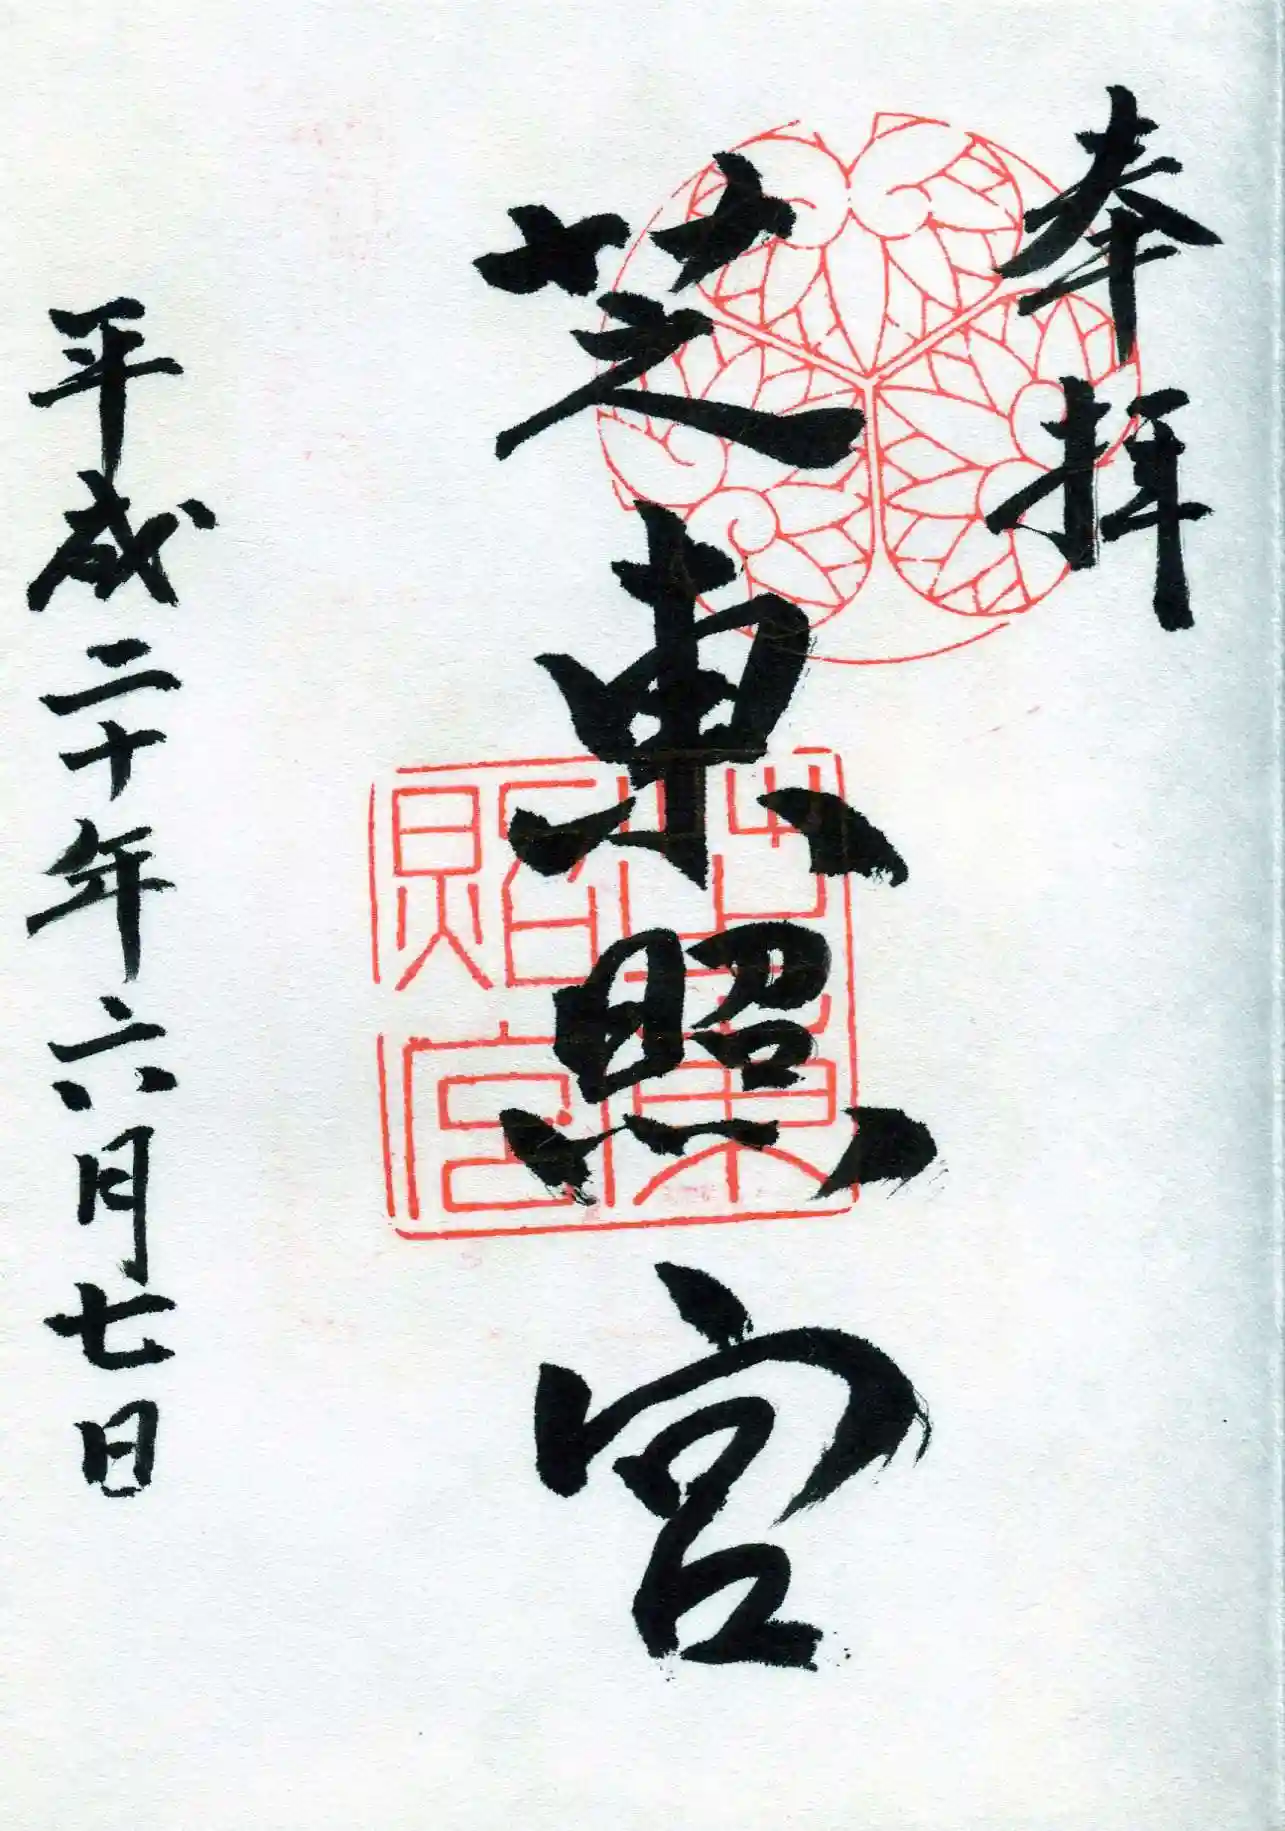 奉拝
芝東照宮
平成二十年六月七日
芝東
照宮